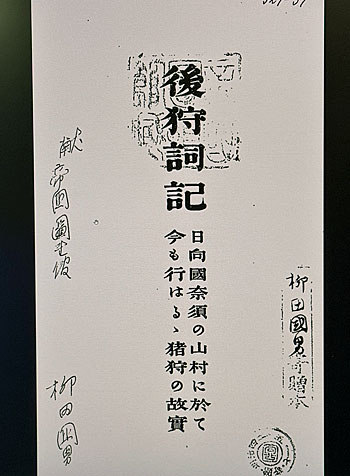 後狩詞記
日向國奈須の山村に於て
今も行はるゝ猪狩の故實
柳田國男寄贈本
献
帝国圖書館
柳田国男